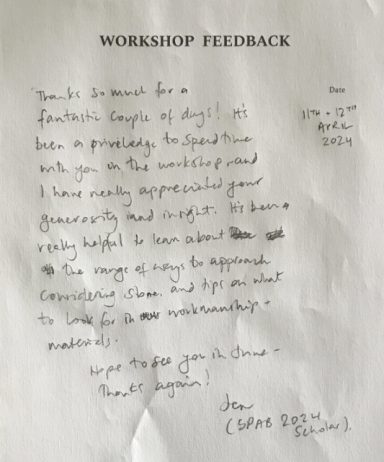 WORKSHOP FEEDBACK
Date
11TH + 12TH
APRIL
2024
Thanks so much for a
fantastic couple of days! It's
been a priveledge to spend time
with you on the workshop and
I have really appreciated your
generosity and insight. It's been a
really helpful to learn about
the range of ways to approach
considering stone, and tips on what
to look for in workmanship +
materials.
Hope to see you in June -
Thanks again!
Jen
(SPAB 2024
Scholar).